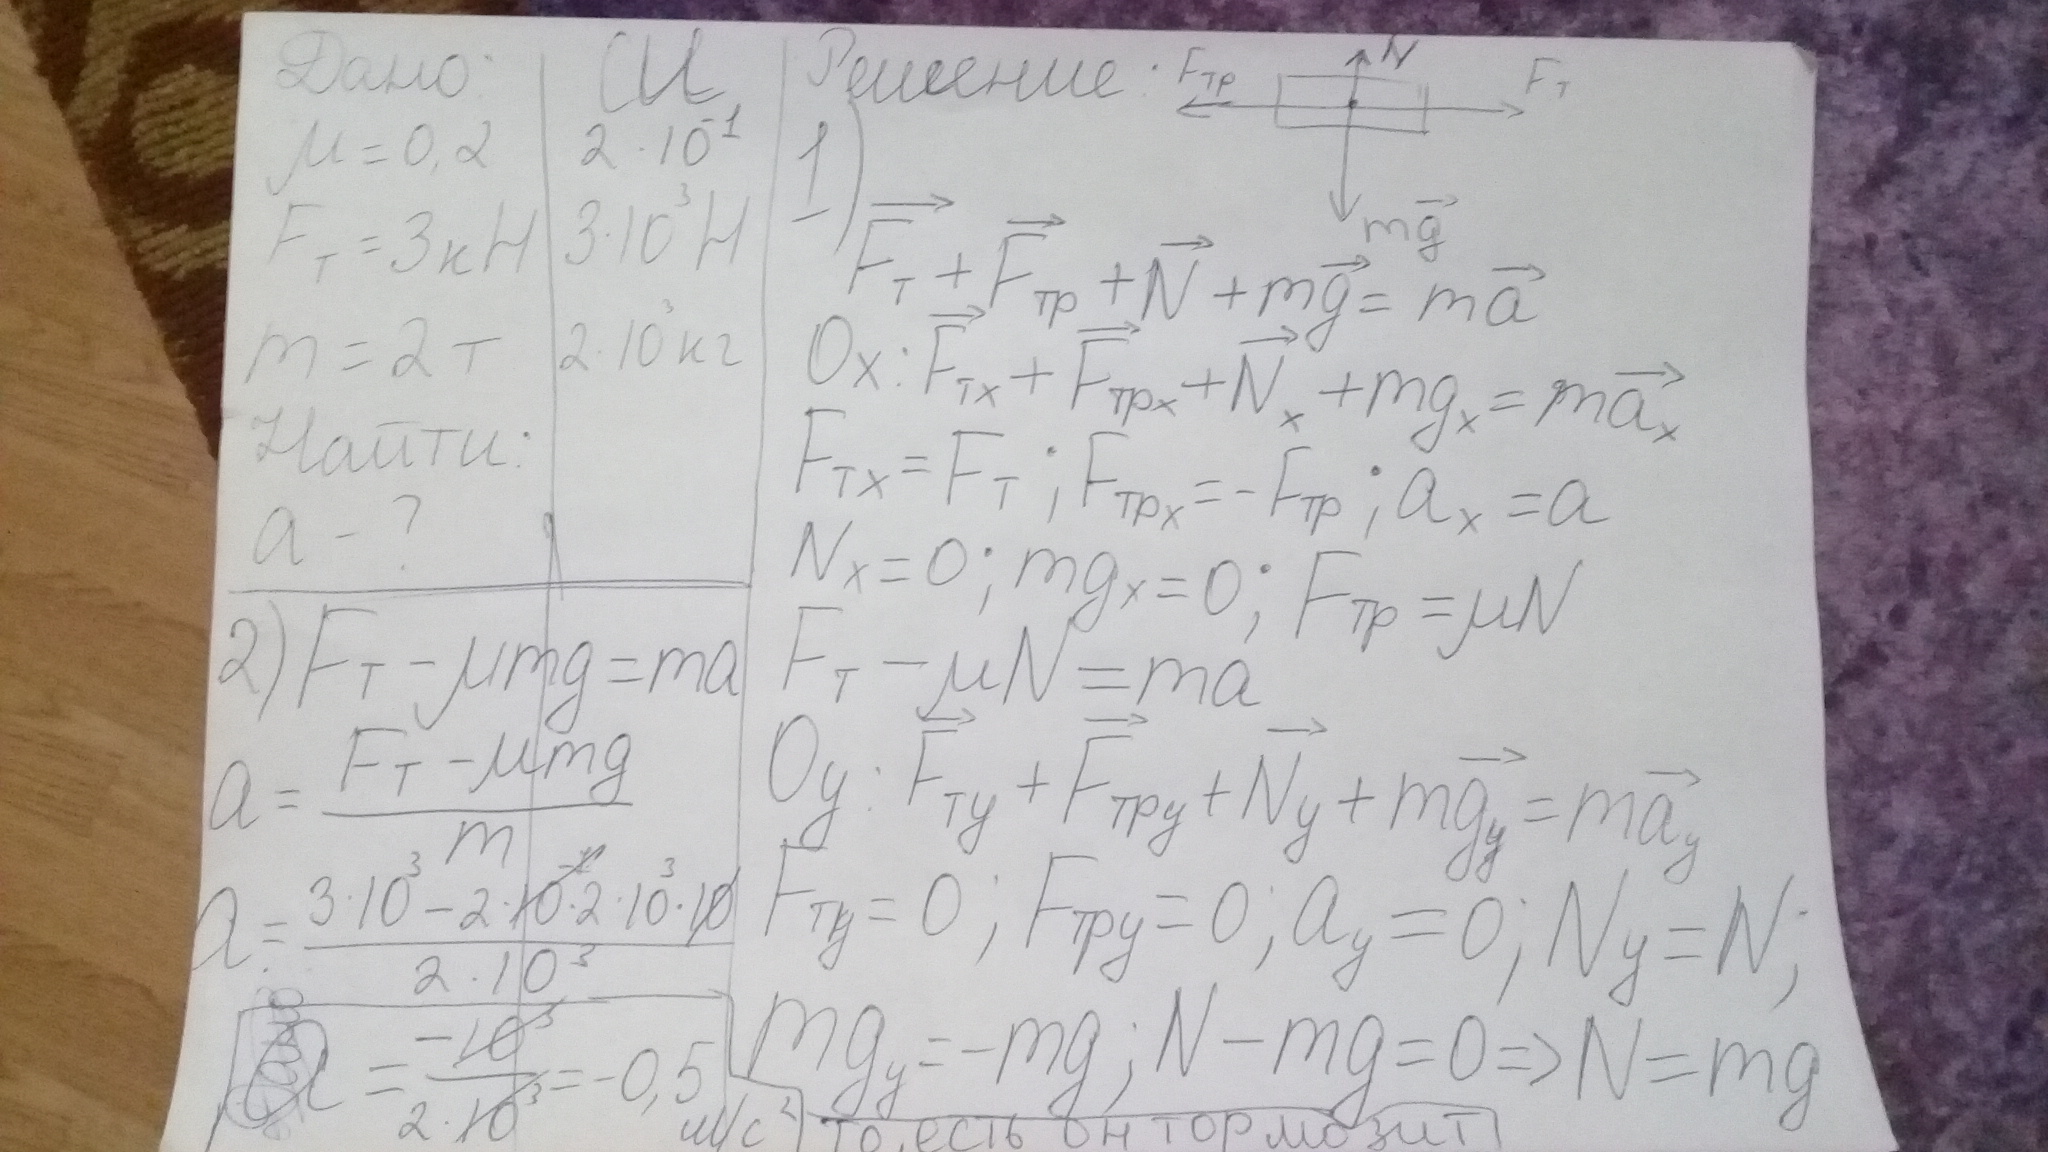 Дано:
μ = 0,2
Fт = 3кН
m = 2 т
Найти:
a - ?
СИ
2 · 10⁻¹
3·10³Н
2·10³кг
Решение:
Fтр
N
Fт
mg⃗
1)
F⃗т + F⃗тр + N⃗ + mg⃗ = ma⃗
Ox: F⃗тx + F⃗трx + N⃗x + mgx = ma⃗x
Fтx = Fт; Fтрx = -Fтр; ax = a
Nx = 0; mgx = 0; Fтр = μN
Fт - μN = ma
Oy: F⃗тy + F⃗трy + N⃗y + mg⃗y = ma⃗y
Fтy = 0; Fтрy = 0; ay = 0; Ny = N;
mgy = -mg; N - mg = 0 => N = mg
2) Fт - μmg = ma
a = (Fт - μmg)/m
a = (3·10³ - 2·10⁻¹·2·10³·10)/(2·10³)
a = -10³/(2·10³) = -0,5 м/с²
то есть он тормозит